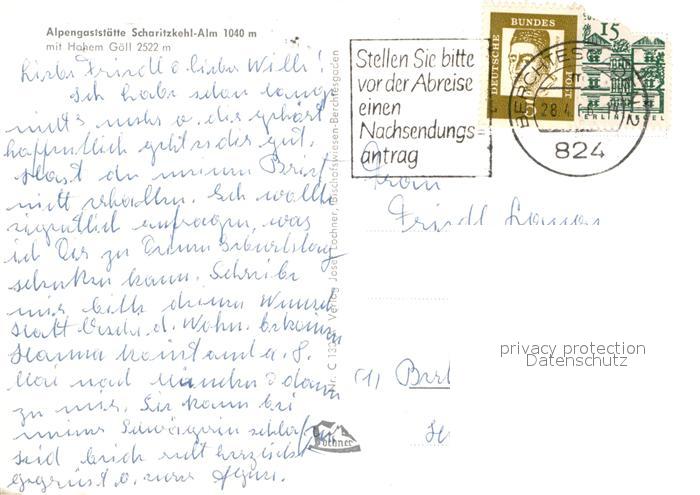 Alpengaststätte Scharitzkehl-Alm 1040 m
mit Hohem Göll 2522 m
Liebe Friedl & lieber Willi!
Ich habe schon lange
nichts mehr v. dir gehört
hoffentlich geht es dir gut.
Hast du meinen Brief
nicht erhalten. Ich wollte
eigentlich anfragen, was
ich Dir zu Deinem Geburtstag
schenken kann. Schreibe
mir bitte deinen Wunsch
Hanna kommt am 8.
Mai nach München & dann
zu mir. Sie kann bei
meiner Schwägerin schlafen
Seid beide recht herzlich
gegrüsst v. eurer
Verlag Josef Lochner, Bischofswiesen-Berchtesgaden
Lochner
Stellen Sie bitte
vor der Abreise
einen
Nachsendungs-
antrag
DEUTSCHE BUNDESPOST
5
15
BERLIN
BERCHTESGADEN 2
28.4
824
Frau
Friedl
(1) Berl
privacy protection
Datenschutz